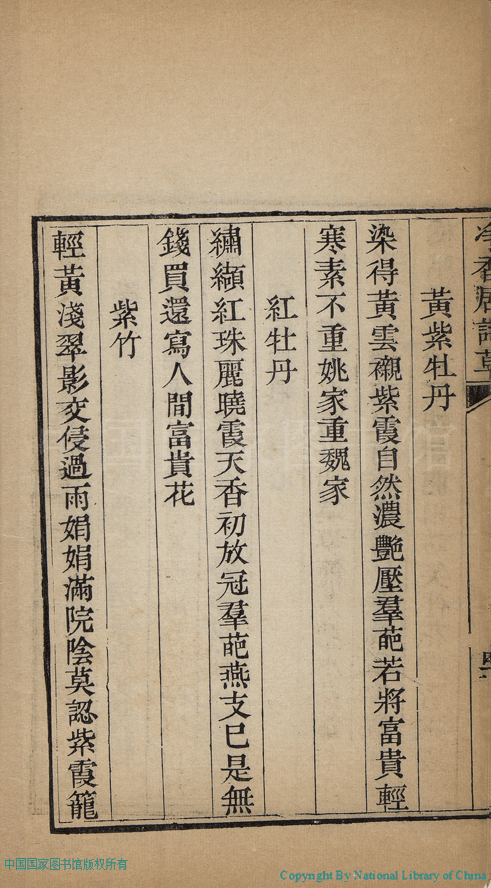 黃紫牡丹
染得黃雲襯紫霞自然濃艷壓羣葩若將富貴輕
寒素不重姚家重魏家
紅牡丹
繡纈紅珠麗曉霞天香初放冠羣葩燕支已是無
錢買還寫人間富貴花
紫竹
輕黃淺翠影交侵過雨娟娟滿院陰莫認紫霞籠
中国国家图书馆版权所有
Copyright By National Library of China